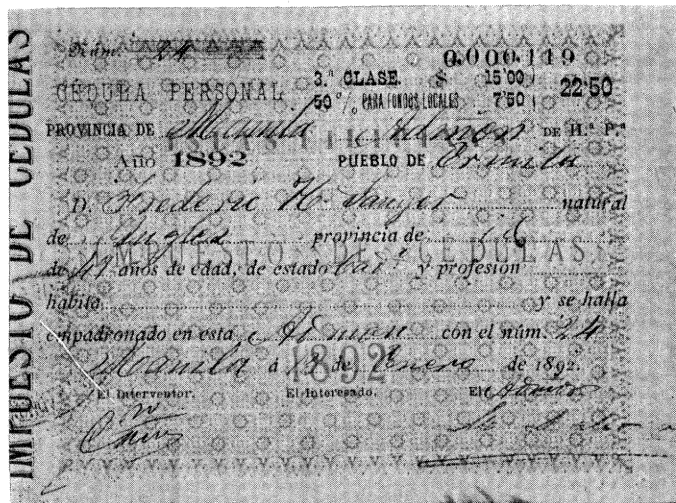 IMPUESTO DE CEDULAS
Núm. 24
0.000.119
CÉDULA PERSONAL
3.ª CLASE. $ 15'00
50 % PARA FONDOS LOCALES 7'50
22'50
PROVINCIA DE Manila Admón DE H.ª P.ª
ISLAS FILIPINAS
Año 1892 PUEBLO DE Ermita
D. Frederic H. Sawyer natural
de Ingles provincia de id
IMPUESTO DE CEDULAS
de 47 años de edad, de estado Cas.º y profesión
habita y se halla
empadronado en esta Admon con el núm. 24
Manila á 12 de Enero de 1892.
1892
El Interventor. El Interesado. El Admor